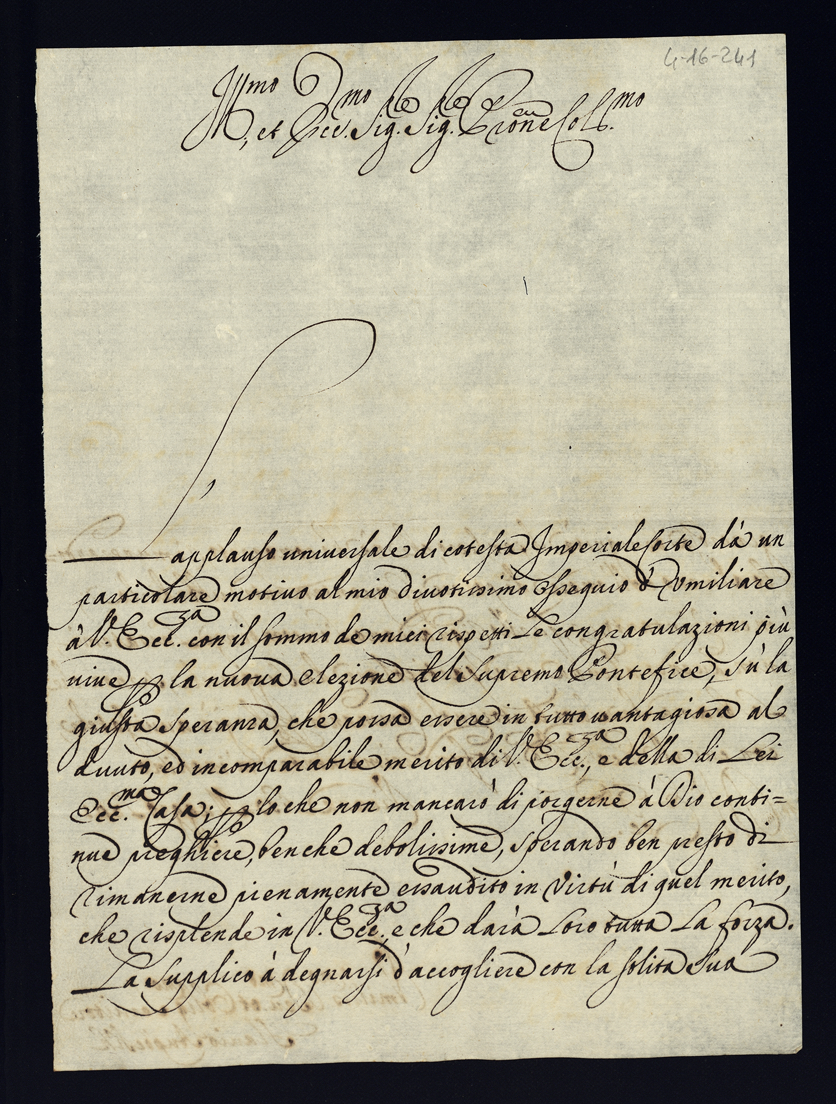 4-16-241
Ill.mo, et Ecc.mo Sig.re Sig.re Pron͠e Col.mo
L'applauso universale di cotesta Imperiale Corte dà un
particolare motivo al mio divotissimo Ossequio d'Vmiliare
à V. Ecc.za con il sommo de miei rispetti Le congratulazioni più
vive p la nuova elezione del Supremo Pontefice, sù la
giusta speranza, che possa essere in tutto vantagiosa al
dvuto, ed incomparabile merito di V. Ecc.za, e della di Lei
Ecc.ma Casa; p lo che non mancarò di porgerne à Dio conti=
nue preghiere, benche debolissime, sperando ben presto di
rimanerne pienamente essaudito in Virtù di quel merito,
che risplende in V. Ecc.za, e che darà Loro tutta La forza.
La Supplico à degnarsi d'accogliere con la solita Sua